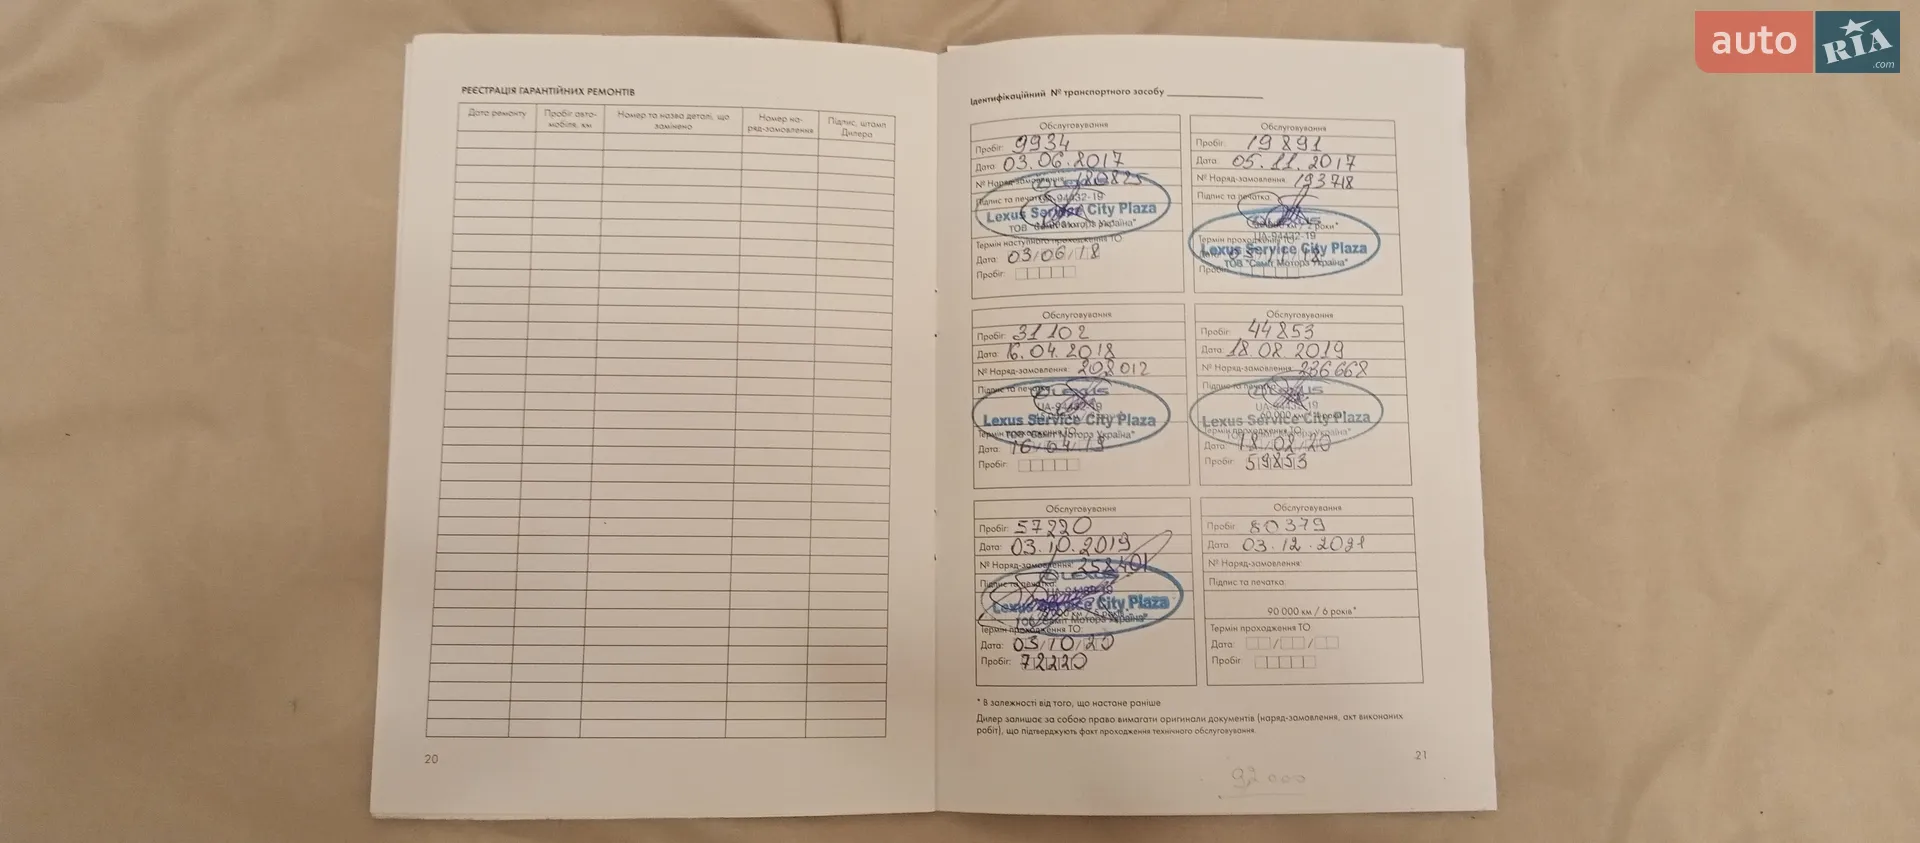 auto RIA.com
РЕЄСТРАЦІЯ ГАРАНТІЙНИХ РЕМОНТІВ
Дата ремонту
Пробіг авто-
мобіля, км
Номер та назва деталі, що
замінено
Номер на-
ряд-замовлення
Підпис, штамп
Дилера
20
Ідентифікаційний № транспортного засобу
Обслуговування
Пробіг: 9934
Дата: 03.06.2017
№ Наряд-замовлення: 180825
Підпис та печатка:
UA-94432-19
Lexus Service City Plaza
ТОВ "Саміт Мотора Україна"
Термін наступного проходження ТО
Дата: 03/06/18
Пробіг:
Обслуговування
Пробіг: 19891
Дата: 05.11.2017
№ Наряд-замовлення: 193718
Підпис та печатка:
LEXUS
UA-94432-19
Lexus Service City Plaza
ТОВ "Саміт Мотора Україна"
Термін проходження ТО
Пробіг:
Обслуговування
Пробіг: 31102
Дата: 16.04.2018
№ Наряд-замовлення: 208012
Підпис та печатка:
LEXUS
UA-94432-19
Lexus Service City Plaza
ТОВ "Саміт Мотора Україна"
Термін проходження ТО
Дата: 16/04/19
Пробіг:
Обслуговування
Пробіг: 44853
Дата: 18.08.2019
№ Наряд-замовлення: 236668
Підпис та печатка:
LEXUS
UA-94432-19
Lexus Service City Plaza
Термін проходження ТО
Дата: 18/08/20
Пробіг: 59853
Обслуговування
Пробіг: 57220
Дата: 03.10.2019
№ Наряд-замовлення: 258401
Підпис та печатка:
LEXUS
Lexus Service City Plaza
ТОВ "Саміт Мотора Україна"
Термін проходження ТО
Дата: 03/10/20
Пробіг: 72220
Обслуговування
Пробіг: 80379
Дата: 03.12.2021
№ Наряд-замовлення:
Підпис та печатка:
90 000 км / 6 років*
Термін проходження ТО
Дата: / /
Пробіг:
* В залежності від того, що настане раніше
Дилер залишає за собою право вимагати оригінали документів (наряд-замовлення, акт виконаних
робіт), що підтверджують факт проходження технічного обслуговування.
21
92 000